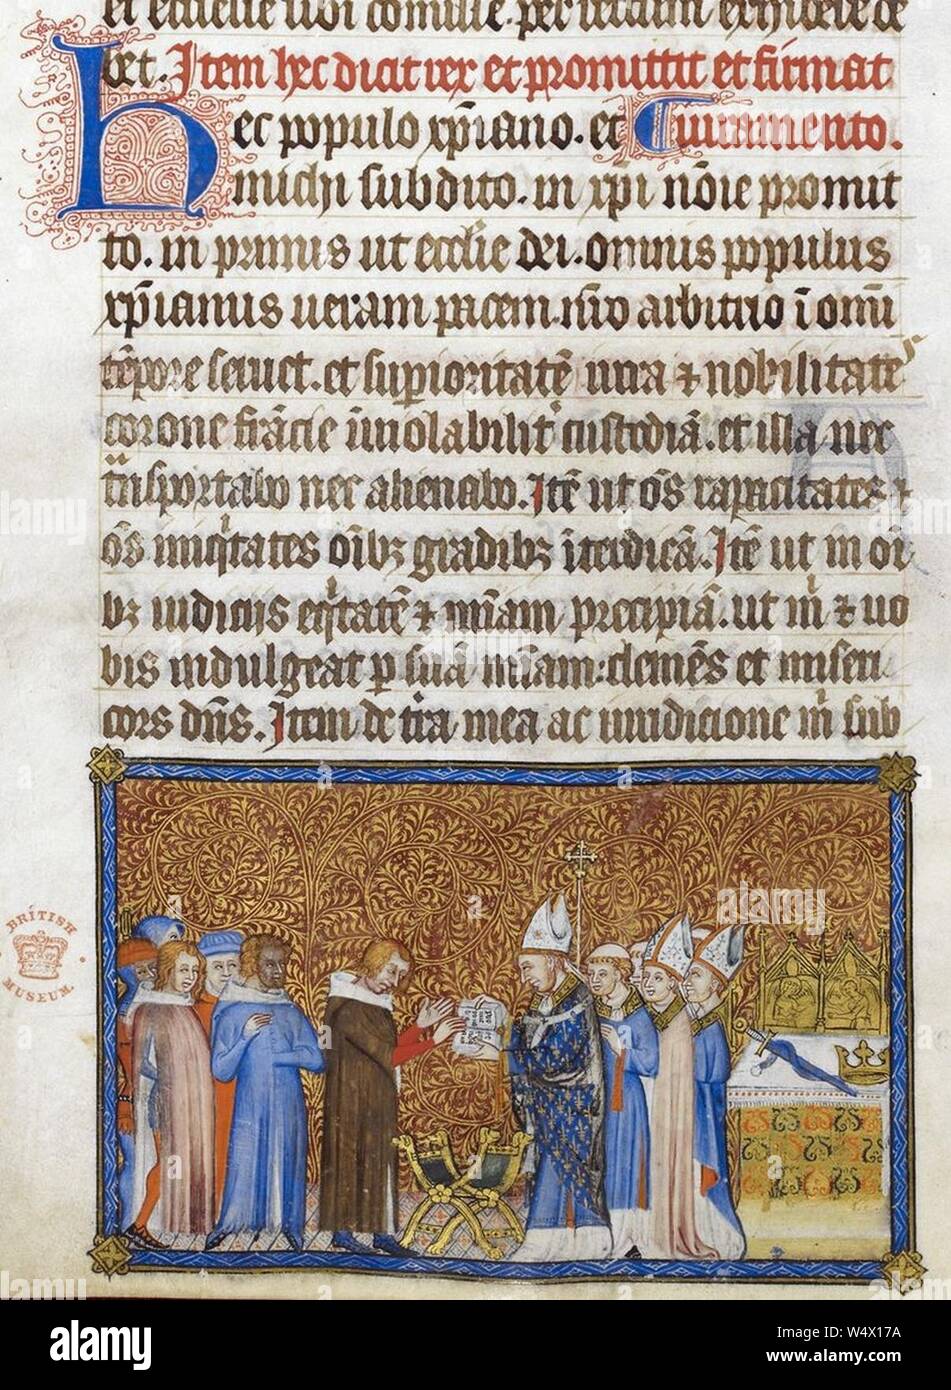 et ecclesie sibi commisse. per iustum exhibere de
bet. Item hec dicit rex et promittit et firmat
ec populo xp̄iano. et iuramento.
michi subdito. in xp̄i nōie promit
to. in primis ut ecclīe dei. omnis populus
xp̄ianus ueram pacem. nr̄o arbitrio ī omni
tēpore seruet. et supioritatē iura ⁊ nobilitatē
corone francie īuiolabilit custodiā. et illa nec
tn̄sportabo nec alienabo. Itē ut oēs rapacitates ⁊
oēs iniqitates oībꝫ gradibꝫ ītdicā. Itē ut in oī
bꝫ iudiciis eqitatē ⁊ mīam precipiā. ut m ⁊ uo
bis indulgeat p suā mīsam: clemēs et miseri
cors dn̄s. Item de tr̄a mea ac iuridicione m sub
BRITISH
MUSEUM
alamy
Image ID: W4X17A
www.alamy.com